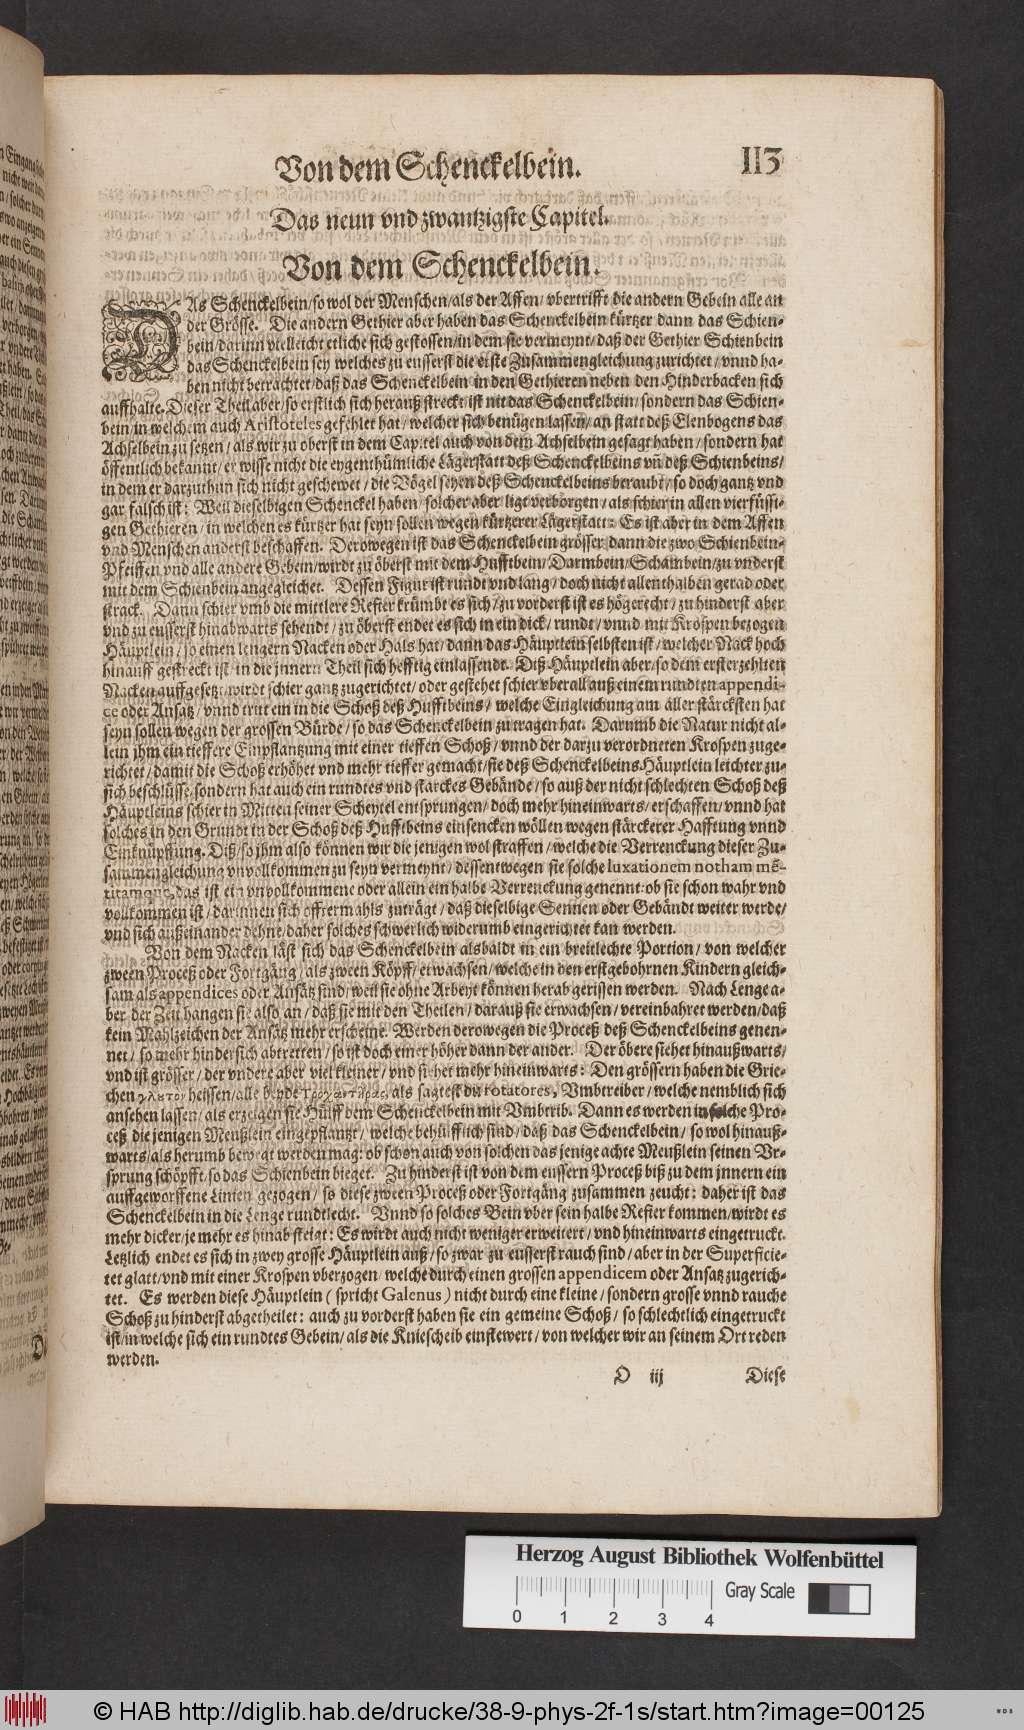 Von dem Schenckelbein. 113
Das neun vnd zwantzigste Capitel.
Von dem Schenckelbein.
DAs Schenckelbein/so wol der Menschen/als der Affen/vbertrifft die andern Gebein alle an
der Grösse. Die andern Gethier aber haben das Schenckelbein kürtzer dann das Schien-
bein/darinn vielleicht etliche sich gestossen/in dem sie vermeynt/daß der Gethier Schienbein
das Schenckelbein sey welches zu eusserst die erste Zusammengleichung zurichtet/vnnd ha-
ben nicht betrachtet/daß das Schenckelbein in den Gethieren neben den Hinderbacken sich
auffhalte. Dieser Theil aber/so erstlich sich herauß streckt/ist nit das Schenckelbein/sondern das Schien-
bein/in welchem auch Aristoteles gefehlet hat/welcher sich benügen lassen/an statt deß Elenbogens das
Achselbein zu setzen/als wir zu oberst in dem Capitel auch von dem Achselbein gesagt haben/sondern hat
öffentlich bekannt/er wisse nicht die eygenthümliche Lägerstatt deß Schenckelbeins vñ deß Schienbeins/
in dem er darzuthun sich nicht geschewet/die Vögel seyen deß Schenckelbeins beraubt/so doch gantz vnd
gar falsch ist: Weil dieselbigen Schenckel haben/solcher aber ligt verborgen/als schier in allen vierfüssi-
gen Gethieren/in welchen es kürtzer hat seyn sollen wegen kürtzerer Lägerstatt: Es ist aber in dem Affen
vnd Menschen anderst beschaffen. Derowegen ist das Schenckelbein grösser dann die zwo Schienbein-
Pfeiffen vnd alle andere Gebein/wirdt zu öberst mit dem Hufftbein/Darmbein/Schambein/zu vnderst
mit dem Schienbein angegleichet. Dessen Figur ist rundt vnd lang/doch nicht allenthalben gerad oder
strack. Dann schier vmb die mittlere Refier krümbt es sich/zu vorderst ist es högerecht/zu hinderst aber
vnd zu eusserst hinabwarts sehendt/zu öberst endet es sich in ein dick/rundt/vnnd mit Krospen bezogen
Häuptlein/so einen lengern Nacken oder Hals hat/dann das Häuptlein selbsten ist/welcher Nack hoch
hinauff gestreckt ist/in die jnnern Theil sich hefftig einlassendt. Diß Häuptlein aber/so dem ersterzehlten
Nacken auffgesetzt/wirdt schier gantz zugerichtet/oder gestehet schier vberall auß einem rundten appendi-
ce oder Ansatz/vnnd tritt ein in die Schoß deß Hufftbeins/welche Eingleichung am aller stärcksten hat
seyn sollen wegen der grossen Bürde/so das Schenckelbein zu tragen hat. Darumb die Natur nicht al-
lein jhm ein tieffere Einpflantzung mit einer tieffen Schoß/vnnd der darzu verordneten Krospen zuge-
richtet/damit die Schoß erhöhet vnd mehr tieffer gemacht/sie deß Schenckelbeins Häuptlein leichter zu-
sich beschlüsse/sondern hat auch ein rundtes vnd starckes Gebände/so auß der nicht schlechten Schoß deß
Häuptleins schier in Mitten seiner Scheytel entsprungen/doch mehr hineinwarts/erschaffen/vnnd hat
solches in den Grundt in der Schoß deß Hufftbeins einsencken wöllen wegen stärckerer Hafftung vnnd
Einknüpffung. Diß/so jhm also können wir die jenigen wol straffen/welche die Verrenckung dieser Zu-
sammengleichung vnvollkommen zu seyn vermeynt/dessentwegen sie solche luxationem notham mē-
titamque, das ist ein vnvollkommene oder allein ein halbe Verrenckung genennt: ob sie schon wahr vnd
vollkommen ist/darinnen sich offtermahls zuträgt/daß dieselbige Sennen oder Gebändt weiter werde/
vnd sich außeinander dehne/daher solches schwerlich widerumb eingerichtet kan werden.
Von dem Nacken läst sich das Schenckelbein alsbaldt in ein breitlechte Portion/von welcher
zween Proceß oder Fortgäng/als zween Köpff/erwachsen/welche in den erstgebohrnen Kindern gleich-
sam als appendices oder Ansätz sind/weil sie ohne Arbeyt können herab gerissen werden. Nach Lenge a-
ber der Zeit hangen sie also an/daß sie mit den Theilen/darauß sie erwachsen/vereinbahret werden/daß
kein Mahlzeichen der Ansätz mehr erscheine. Werden derowegen die Proceß deß Schenckelbeins genen-
net/so mehr hindersich abtretten/so ist doch einer höher dann der ander. Der öbere siehet hinaußwarts/
vnd ist grösser/der vndere aber viel kleiner/vnd siehet mehr hineinwarts: Den grössern haben die Grie-
chen γλουτον heissen/alle beyde τροχαντῆρας, als sagtest du rotatores, Vmbtreiber/welche nemblich sich
ansehen lassen/als erzeigen sie Hülff dem Schenckelbein mit Vmbtrib. Dann es werden in solche Pro-
ceß die jenigen Meußlein eingepflantzt/welche behülfflich sind/daß das Schenckelbein/so wol hinauß-
warts/als herumb bewegt werden mag: ob schon auch von solchen das jenige achte Meußlein seinen Vr-
sprung schöpfft/so das Schienbein bieget. Zu hinderst ist von dem eussern Proceß biß zu dem jnnern ein
auffgeworffene Linien gezogen/so diese zween Proceß oder Fortgäng zusammen zeucht: daher ist das
Schenckelbein in die Lenge rundtlecht. Vnnd so solches Bein vber sein halbe Refier kommen/wirdt es
mehr dicker/je mehr es hinab steigt: Es wirdt auch nicht weniger erweitert/vnd hineinwarts eingetruckt.
Letzlich endet es sich in zwey grosse Häuptlein auß/so zwar zu eusserst rauch sind/aber in der Superficie-
tet glatt/vnd mit einer Krospen vberzogen/welche durch einen grossen appendicem oder Ansatz zugerich-
tet. Es werden diese Häuptlein (spricht Galenus) nicht durch eine kleine/sondern grosse vnnd rauche
Schoß zu hinderst abgetheilet: auch zu vorderst haben sie ein gemeine Schoß/so schlechtlich eingetruckt
ist/in welche sich ein rundtes Gebein/als die Kniescheib einstewert/von welcher wir an seinem Ort reden
werden.
O iij Diese
Herzog August Bibliothek Wolfenbüttel
Gray Scale
0 1 2 3 4
© HAB http://diglib.hab.de/drucke/38-9-phys-2f-1s/start.htm?image=00125